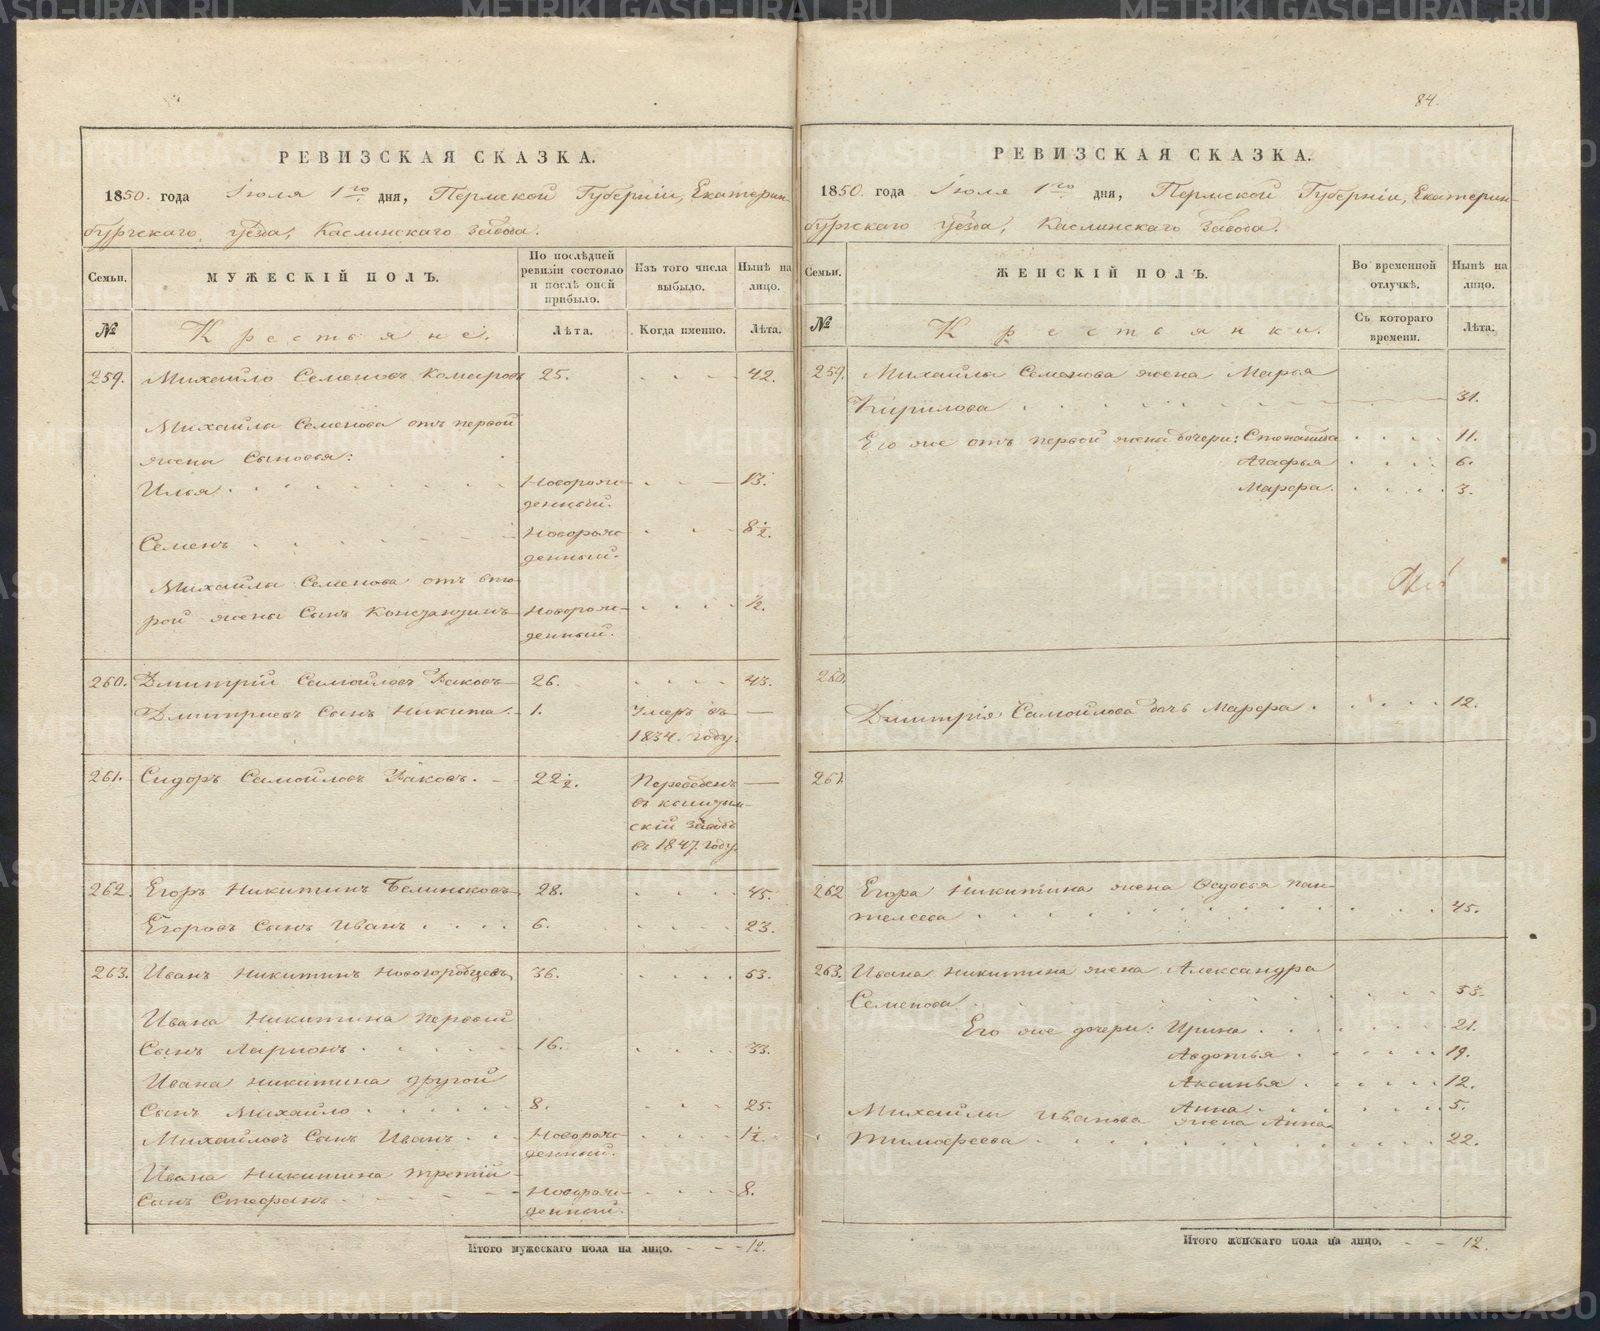 84.
РЕВИЗСКАЯ СКАЗКА.
1850. года Іюля 1го дня, Пермской Губерніи, Екатерин-
бургскаго уѣзда, Каслинскаго завода.
Семьи.
МУЖЕСКІЙ ПОЛЪ.
По послѣдней
ревизіи состояло
и послѣ оной
прибыло.
Изъ того числа
выбыло.
Нынѣ на
лицо.
№
Крестьяне.
Лѣта.
Когда именно.
Лѣта.
259. Михайло Семеновъ Комаровъ 25. 42.
Михайлы Семенова отъ первой
жены Сыновья:
Илья Новорож- 13.
денный.
Семенъ Новорож- 8½.
денный.
Михайлы Семенова отъ вто-
рой жены Сынъ Констянтинъ Новорож- ½.
денный.
260. Дмитрій Самойловъ 26. 43.
Дмитріевъ Сынъ Никита. 1. Умеръ въ —
1834. году.
261. Сидоръ Самойловъ 22½. Переведенъ —
въ
скій заводъ
въ 1847. году.
262. Егоръ Никитинъ 28. 45.
Егоровъ Сынъ Иванъ 6. 23.
263. Иванъ Никитинъ Новогородцевъ 36. 53.
Ивана Никитина первый
Сынъ Ларионъ 16. 33.
Ивана Никитина другой
Сынъ Михайло 8. 25.
Михайловъ Сынъ Иванъ Новорож- 1½.
денный.
Ивана Никитина третій
Сынъ Стефанъ Новорож- 8.
денный.
Итого мужескаго пола на лицо. 12.
РЕВИЗСКАЯ СКАЗКА.
1850. года Іюля 1го дня, Пермской Губерніи, Екатерин-
бургскаго уѣзда, Каслинскаго завода.
Семьи.
ЖЕНСКІЙ ПОЛЪ.
Во временной
отлучкѣ.
Нынѣ на
лицо.
№
Крестьянки.
Съ котораго
времени.
Лѣта.
259. Михайлы Семенова жена Марья
Кирилова 31.
Его же отъ первой жены дочери: Степанида 11.
Агафья 6.
Марфа. 3.
260.
Дмитрія Самойлова дочь Марфа 12.
261.
262 Егора Никитина жена Федосья Пан-
телеева 45.
263. Ивана Никитина жена Александра
Семенова 53.
Его же дочери: Ирина 21.
Авдотья 19.
Аксинья 12.
Анна 5.
Михайлы Иванова жена Анна
Тимофеева 22.
Итого женскаго пола на лицо. 12.
METRIKI.GASO-URAL.RU